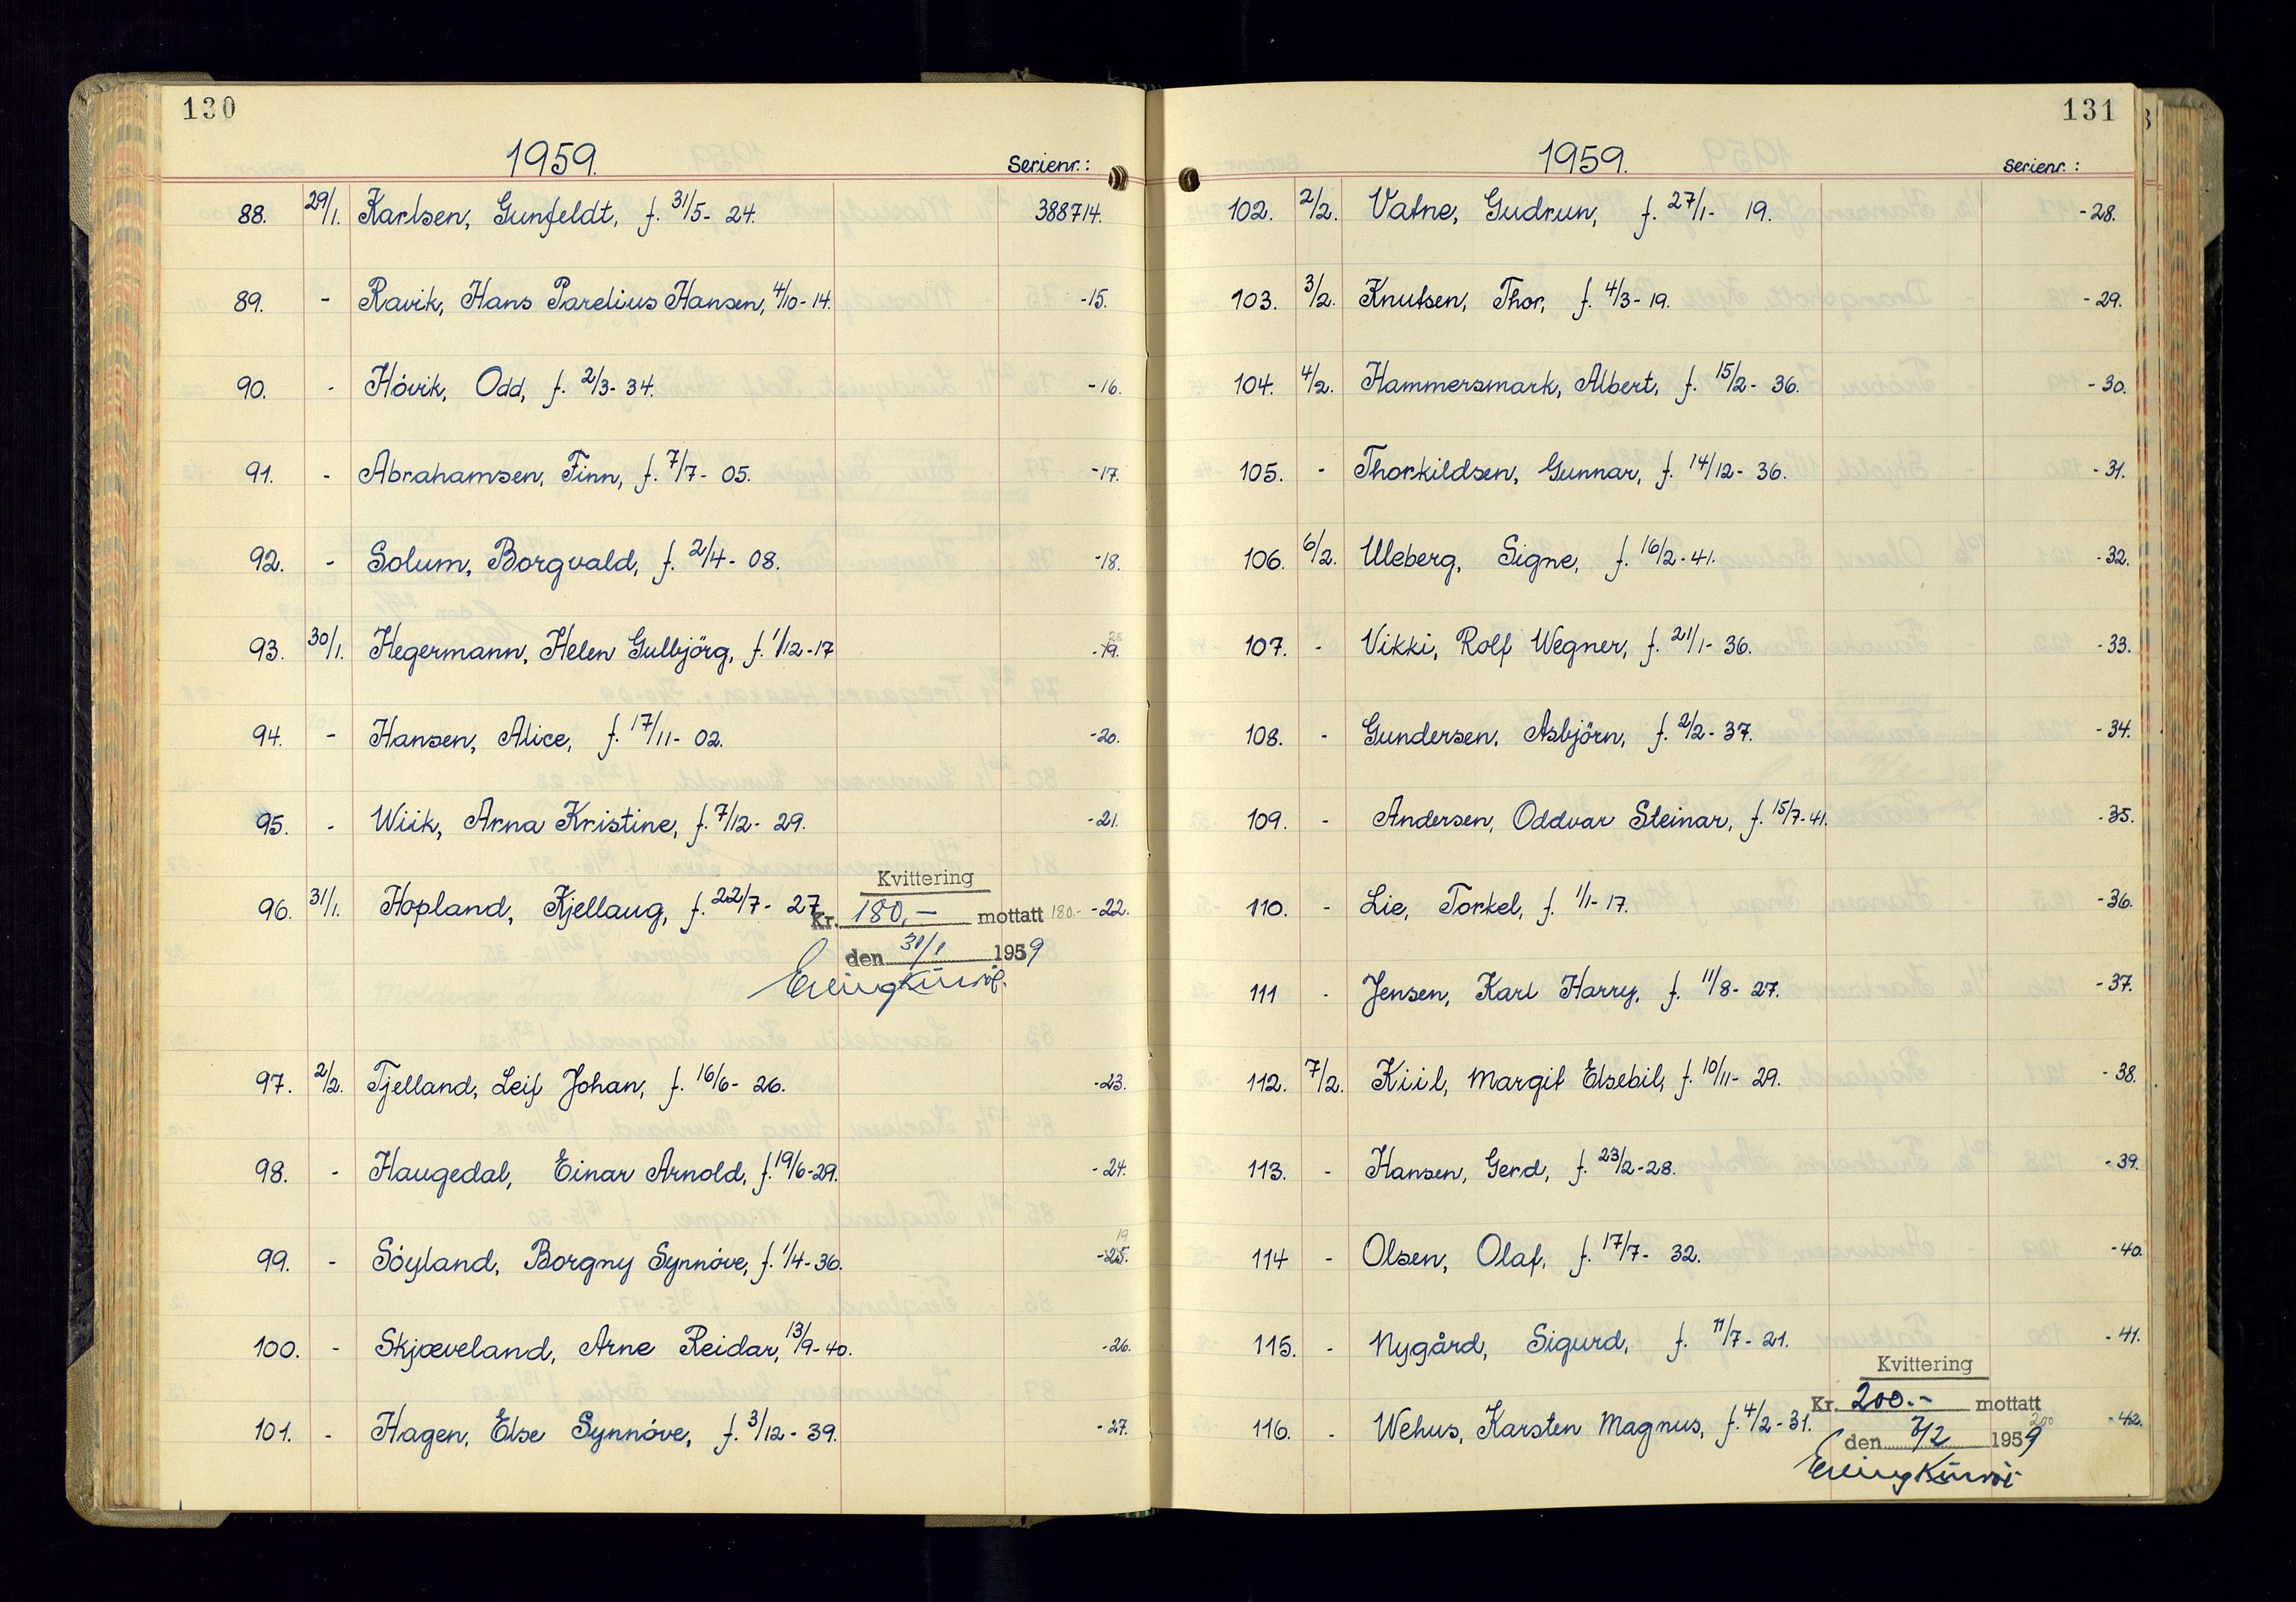 130
1959. Serienr.:
88. 29/1. Karlsen, Gunfeldt, f. 31/5- 24. 388714.
89. - Ravik, Hans Parelius Hansen, 4/10-14. -15.
90. - Hóvik, Odd, f. 2/3- 34. -16.
91. - Abrahamsen, Finn, f. 7/7- 05. -17.
92. - Solum, Borgvald, f. 2/4- 08. -18.
93. 30/1. Hegermann, Helen Gulbjörg, f. 1/12-17 -19. 25
94. - Hansen, Alice, f. 17/11- 02. -20.
95. - Wiik, Arna Kristine, f. 7/12- 29. -21.
96. 31/1. Hopland, Kjellaug, f. 22/7- 27. -22.
Kvittering
Kr. 180,- mottatt 180.-
den 31/1 1959
97. 2/2. Tjelland, Leif Johan, f. 16/6- 26. -23.
98. - Haugedal, Einar Arnold, f. 19/6-29. -24.
99. - Sóyland, Borgny Synnóve, f. 1/4-36. -25. 19
100. - Skjæveland, Arne Reidar, 13/9-40. -26.
101. - Hagen, Else Synnóve, f. 3/12- 39. -27.
131
1959. Serienr.:
102. 2/2. Vatne, Gudrun, f. 27/1- 19. -28.
103. 3/2. Knutsen, Thor, f. 4/3-19. -29.
104. 4/2. Hammersmark, Albert, f. 15/2- 36. -30.
105. - Thorkildsen, Gunnar, f. 14/12- 36. -31.
106. 6/2. Uleberg, Signe, f. 16/2-41. -32.
107. - Vikki, Rolf Wegner, f. 21/1- 36. -33.
108. - Gundersen, Asbjörn, f. 2/2- 37. -34.
109. - Andersen, Oddvar Steinar, f. 15/7-41. -35.
110. - Lie, Torkel, f. 1/1- 17. -36.
111 - Jensen, Karl Harry, f. 11/8- 27. -37.
112. 7/2. Kiil, Margit Elsebil, f. 10/11- 29. -38.
113. - Hansen, Gerd, f. 23/2-28. -39.
114 - Olsen, Olaf, f. 17/7- 32. -40.
115. - Nygård, Sigurd, f. 11/7- 21. -41.
116. - Wehus, Karsten Magnus, f. 4/2-31. -42.
Kvittering
Kr. 200.- mottatt
200
den 7/2 1959